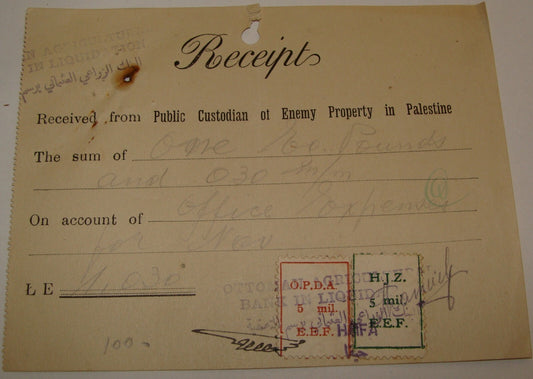 IN LIQUIDATION
البنك الزراعي العثماني برسم
Receipt
Received from Public Custodian of Enemy Property in Palestine
The sum of One Eg. Pounds
and 030 m/m
On account of Office Expenses
for Nov
£E 1,030
OTTOMAN AGRICULTURAL
BANK IN LIQUIDATION
HAIFA
حيفا
O.P.D.A.
5 mil.
E.E.F.
H.J.Z.
5 mil.
E.E.F.
100-